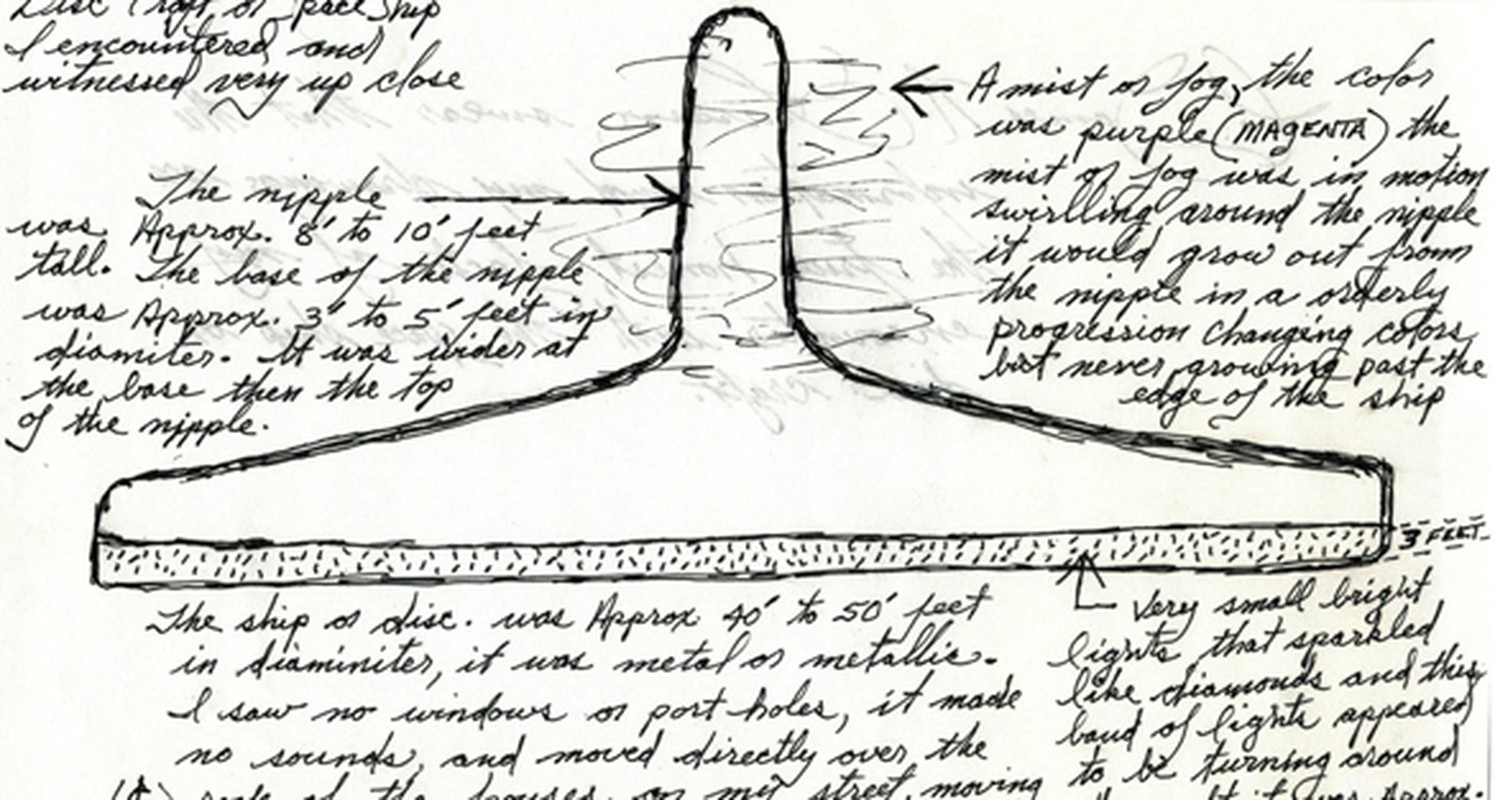 Disc Craft or Space Ship
I encountered and
witnessed very up close
The nipple
was Approx. 8' to 10' feet
tall. The base of the nipple
was Approx. 3' to 5' feet in
diamiter. It was wider at
the base then the top
of the nipple.
A mist or fog, the color
was purple (MAGENTA) the
mist or fog was in motion
swirlling around the nipple
it would grow out from
the nipple in a orderly
progression changing colors
but never growing past the
edge of the ship
3 FEET
The ship or disc. was Approx 40' to 50' feet
in diaminiter, it was metal or metallic.
I saw no windows or port holes, it made
no sounds, and moved directly over the
of the houses, on my street, moving
Very small bright
lights that sparkled
like diamonds and this
band of lights appeared
to be turning around
it was Approx.